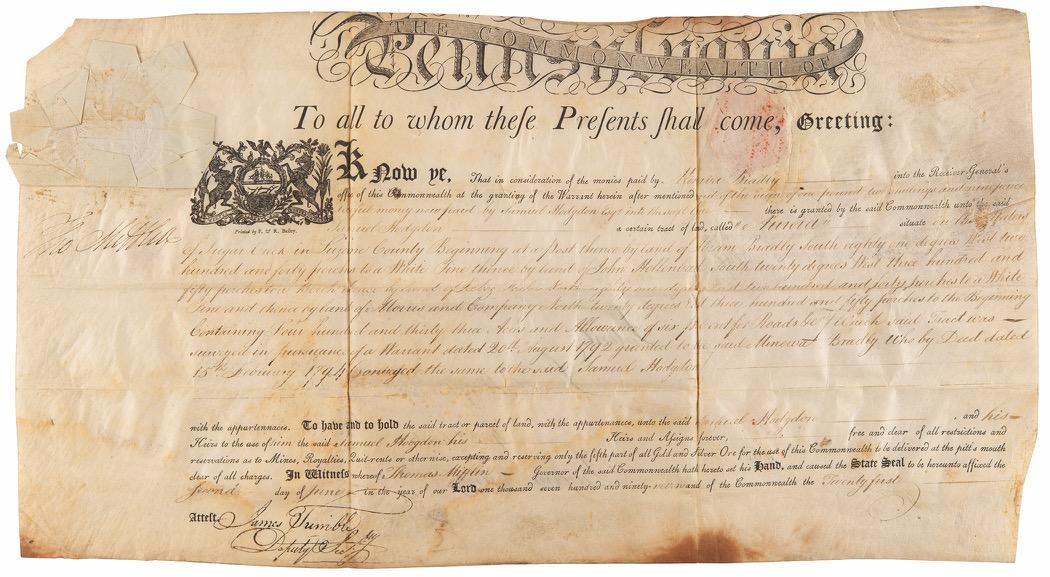 THE COMMONWEALTH OF
Pennsylvania
To all to whom theſe Preſents ſhall come, Greeting:
Know ye, That in consideration of the monies paid by Bradly into the Receiver General's
office of this Commonwealth at the granting of the Warrant herein after mentioned and of the sum of pound two shillings and nine pence
lawful money now paid by Samuel Hodgdon Esqr into the there is granted by the said Commonwealth unto the said
Samuel Hodgdon a certain tract of land, called situate on the Waters
Printed by F. & R. Bailey.
Tho Mifflin
of Sugar Creek in Luzerne County Beginning at a Post thence by land of Bradly South eighty one degrees West two
hundred and forty perches to a White Pine thence by land of John Hollenback South twenty degrees West three hundred and
fifty perches thence by land of North eighty one degrees two hundred and forty perches to a White
Pine and thence by land of Morris and Company North twenty degrees three hundred and fifty perches to the Beginning
Containing Four hundred and thirty three Acres and Allowance of six per cent for Roads &c Which said Tract was
surveyed in pursuance of a Warrant dated 20th August 1792 granted to the said Bradly Who by Deed dated
15th February 1794 conveyed the same to the said Samuel Hodgdon
with the appurtenances. To have and to hold the said tract or parcel of land, with the appurtenances, unto the said Samuel Hodgdon and his
Heirs to the use of him the said Samuel Hodgdon his Heirs and Aſsigns forever, free and clear of all restrictions and
reservations as to Mines, Royalties, Quit-rents or otherwise, excepting and reserving only the fifth part of all Gold and Silver Ore for the use of this Commonwealth to be delivered at the pit's mouth
clear of all charges. In Witneſs whereof Thomas Mifflin Governor of the said Commonwealth hath hereto set his Hand, and caused the State Seal to be hereunto affixed the
Second day of June in the year of our Lord one thousand seven hundred and ninety-seven and of the Commonwealth the Twenty first
Attest.
James Trimble
Deputy Secy